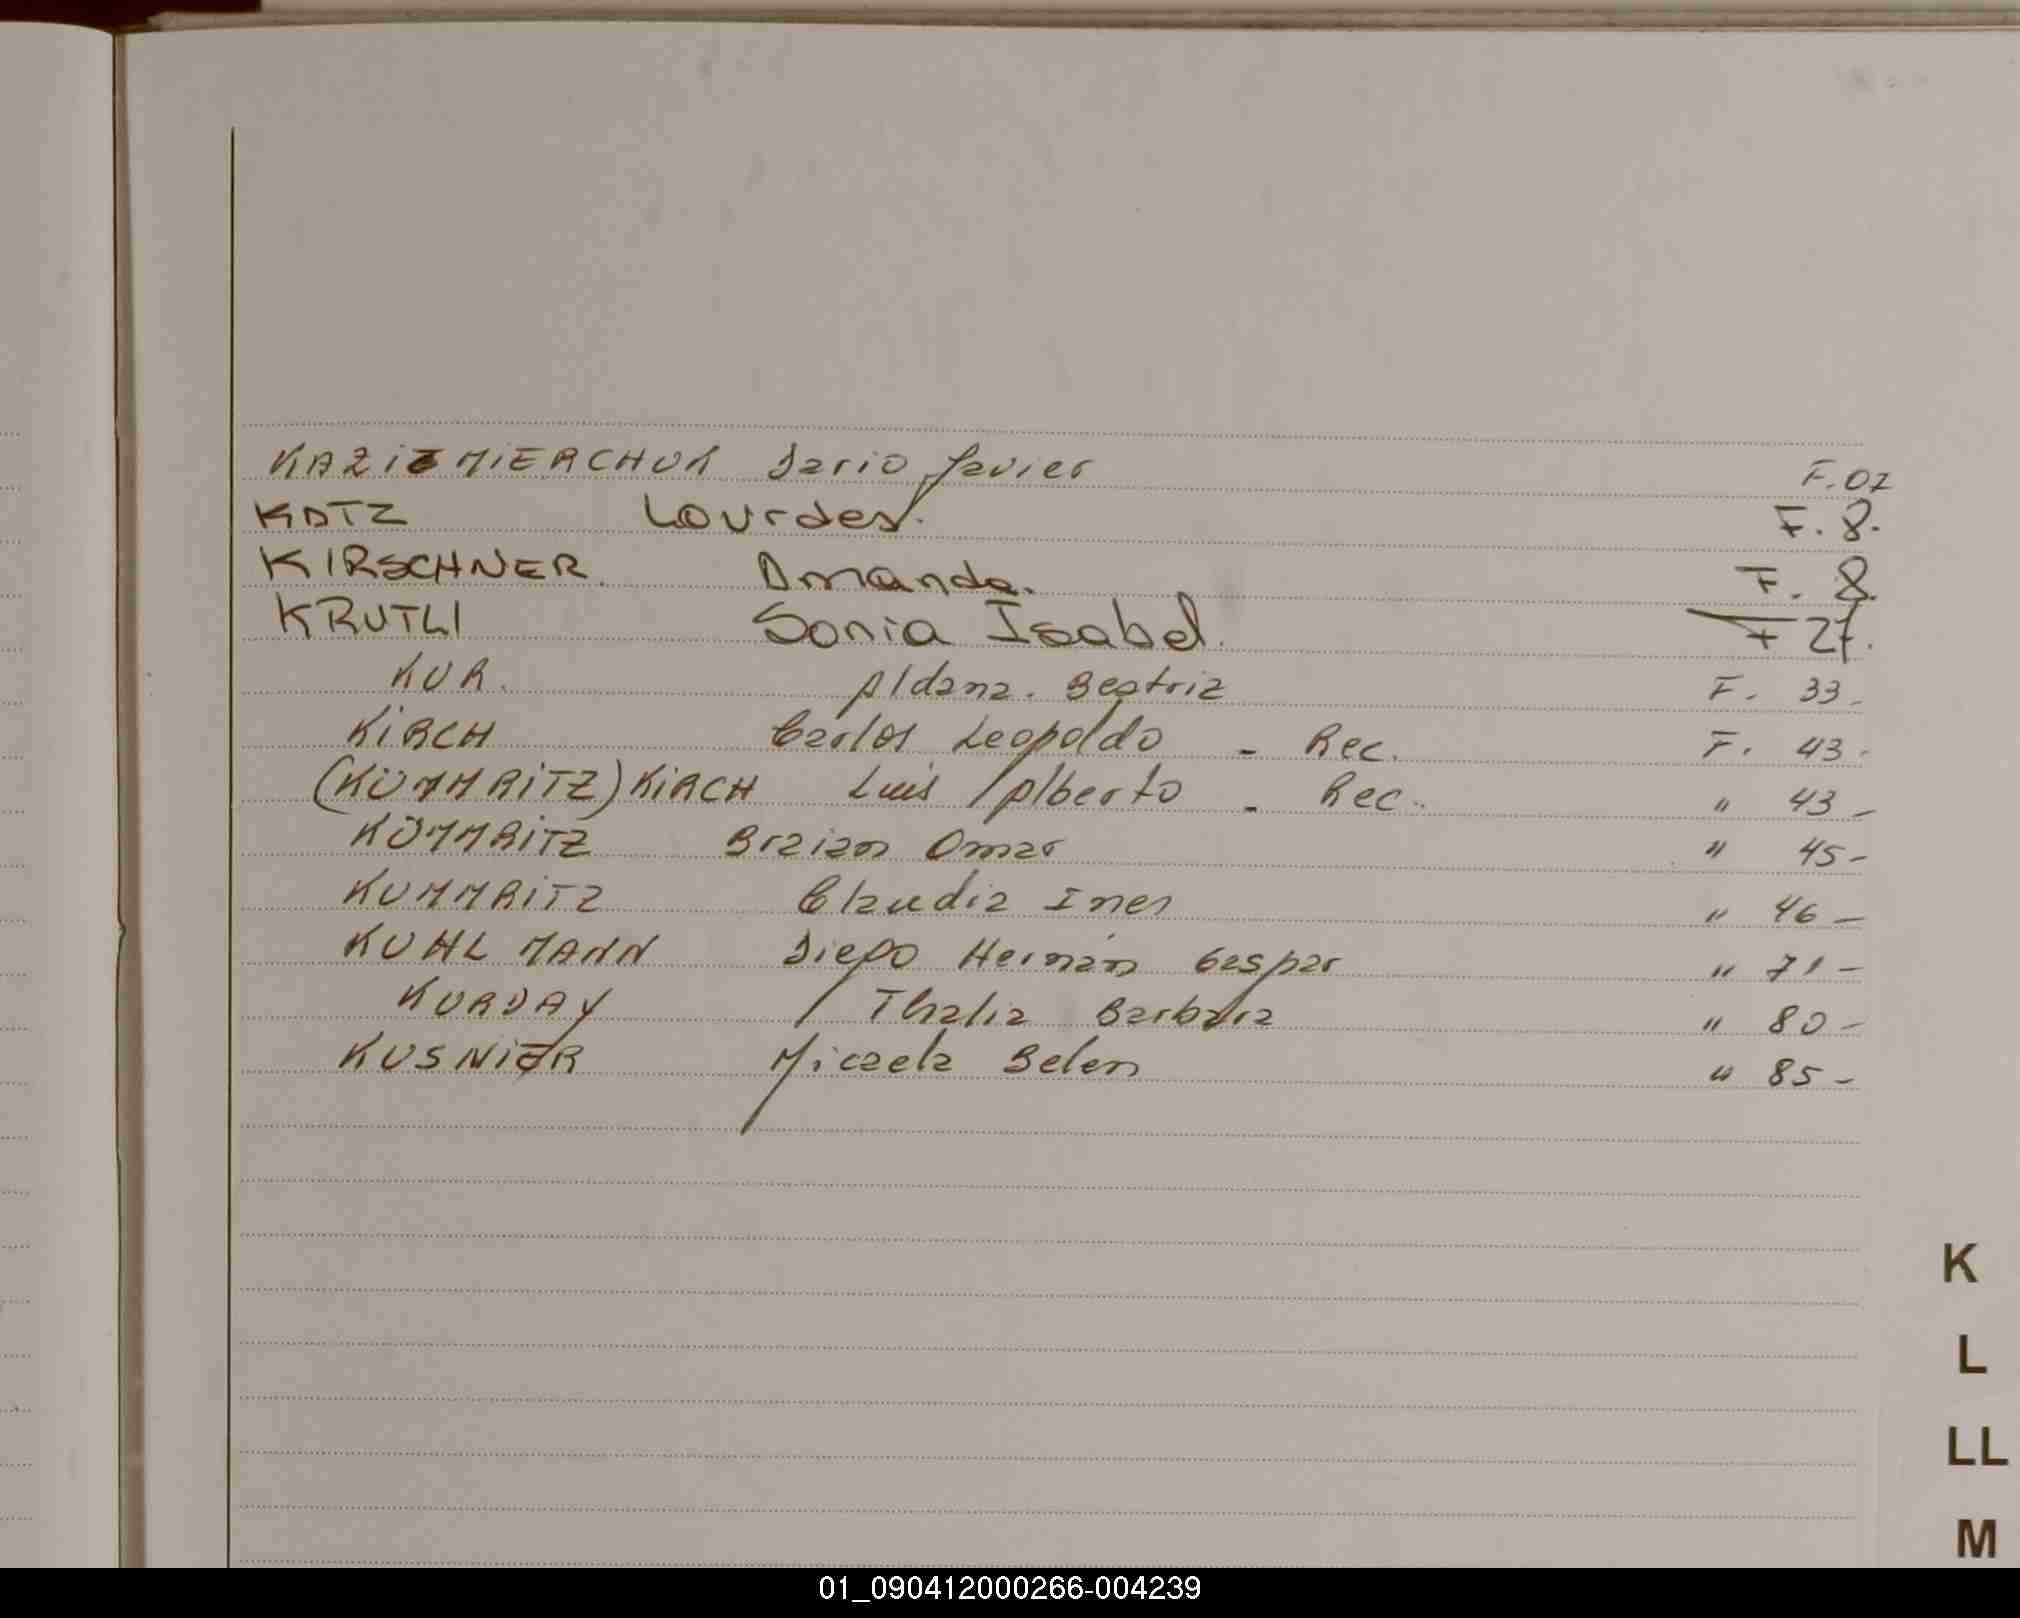 KAZIEMIERCHUK Dario Javier F. 02
KATZ Lourdes. F. 8.
KIRSCHNER. Amanda. F. 8.
KRUTLI Sonia Isabel. F 27.
KUR. Aldana. Beatriz F. 33-
KIRCH Carlos Leopoldo - Rec. F. 43-
(KÜMMRITZ) KIRCH Luis Alberto - Rec. " 43-
KÜMMRITZ Braian Omar " 45-
KUMMRITZ Claudia Ines " 46-
KUHLMANN Diego Hernán Gaspar " 71-
KURDAY Thalia Barbara " 80-
KUSNIER Micaela Belen " 85-
K
L
LL
M
01_090412000266-004239